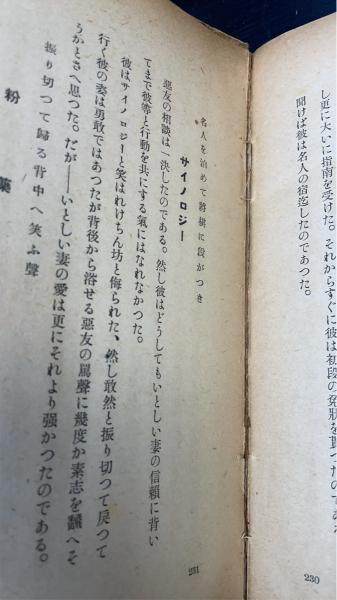 し更に大いに指南を受けた。それからすぐに彼は初段の免狀を貰つたのであ
聞けば彼は名人の宿迄したのであつた。
230
名人を泊めて將棋に段がつき
サイノロジー
惡友の相談は一決したのである。然し彼はどうしてもいとしい妻の信賴に背い
てまで彼等と行動を共にする氣にはなれなかつた。
彼はサイノロジーと笑はれけちん坊と侮られた、然し敢然と振り切つて戾つて
行く彼の姿は勇敢ではあつたが背後から浴せる惡友の罵聲に幾度か素志を飜へそ
うかとさへ思つた。だが――いとしい妻の愛は更にそれより强かつたのである。
振り切つて歸る背中へ笑ふ聲
粉藥
231